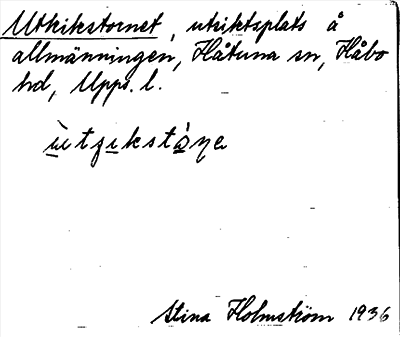 Utkikstornet, utsiktsplats å
allmänningen, Håtuna sn, Håbo
hd, Upps. l.
Stina Holmström 1936